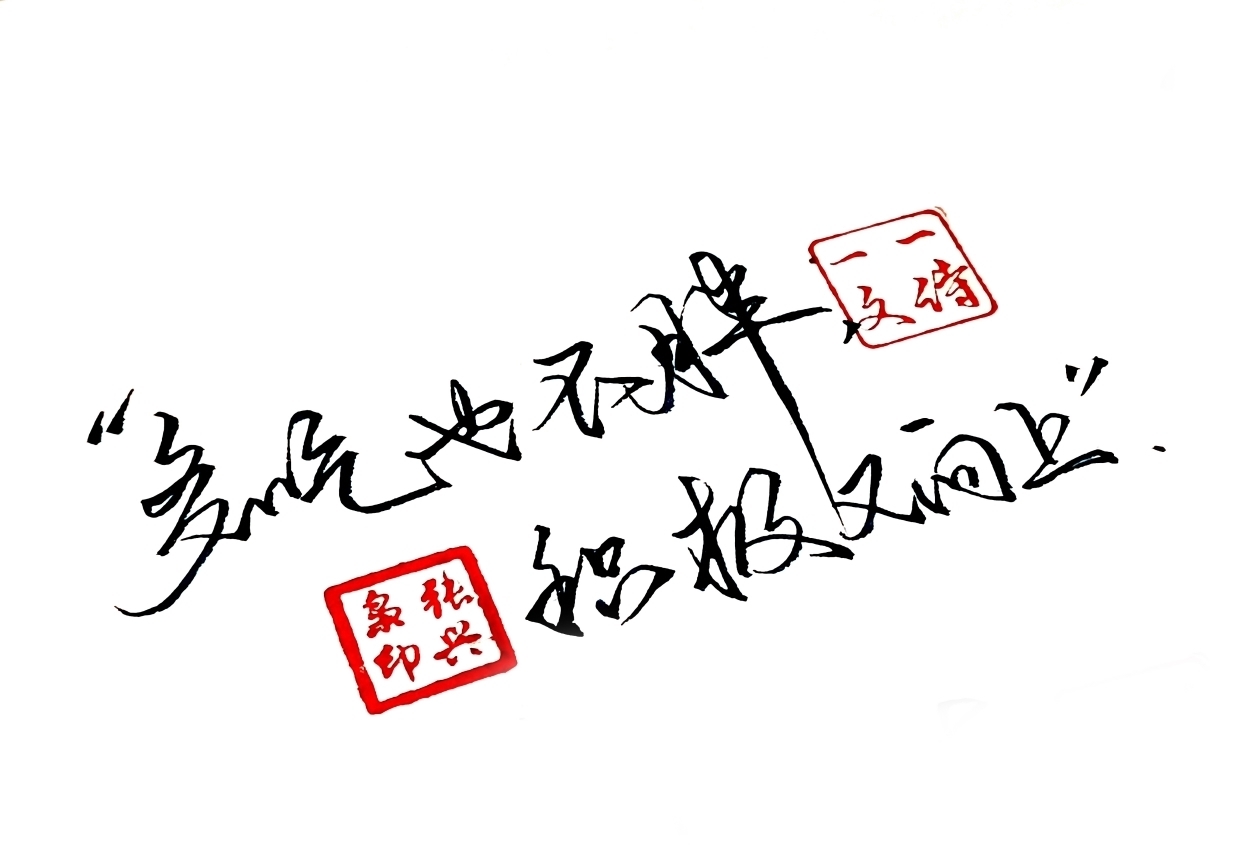 “多吃也不胖
积极又向上”.
一诗
一文
张兴
印